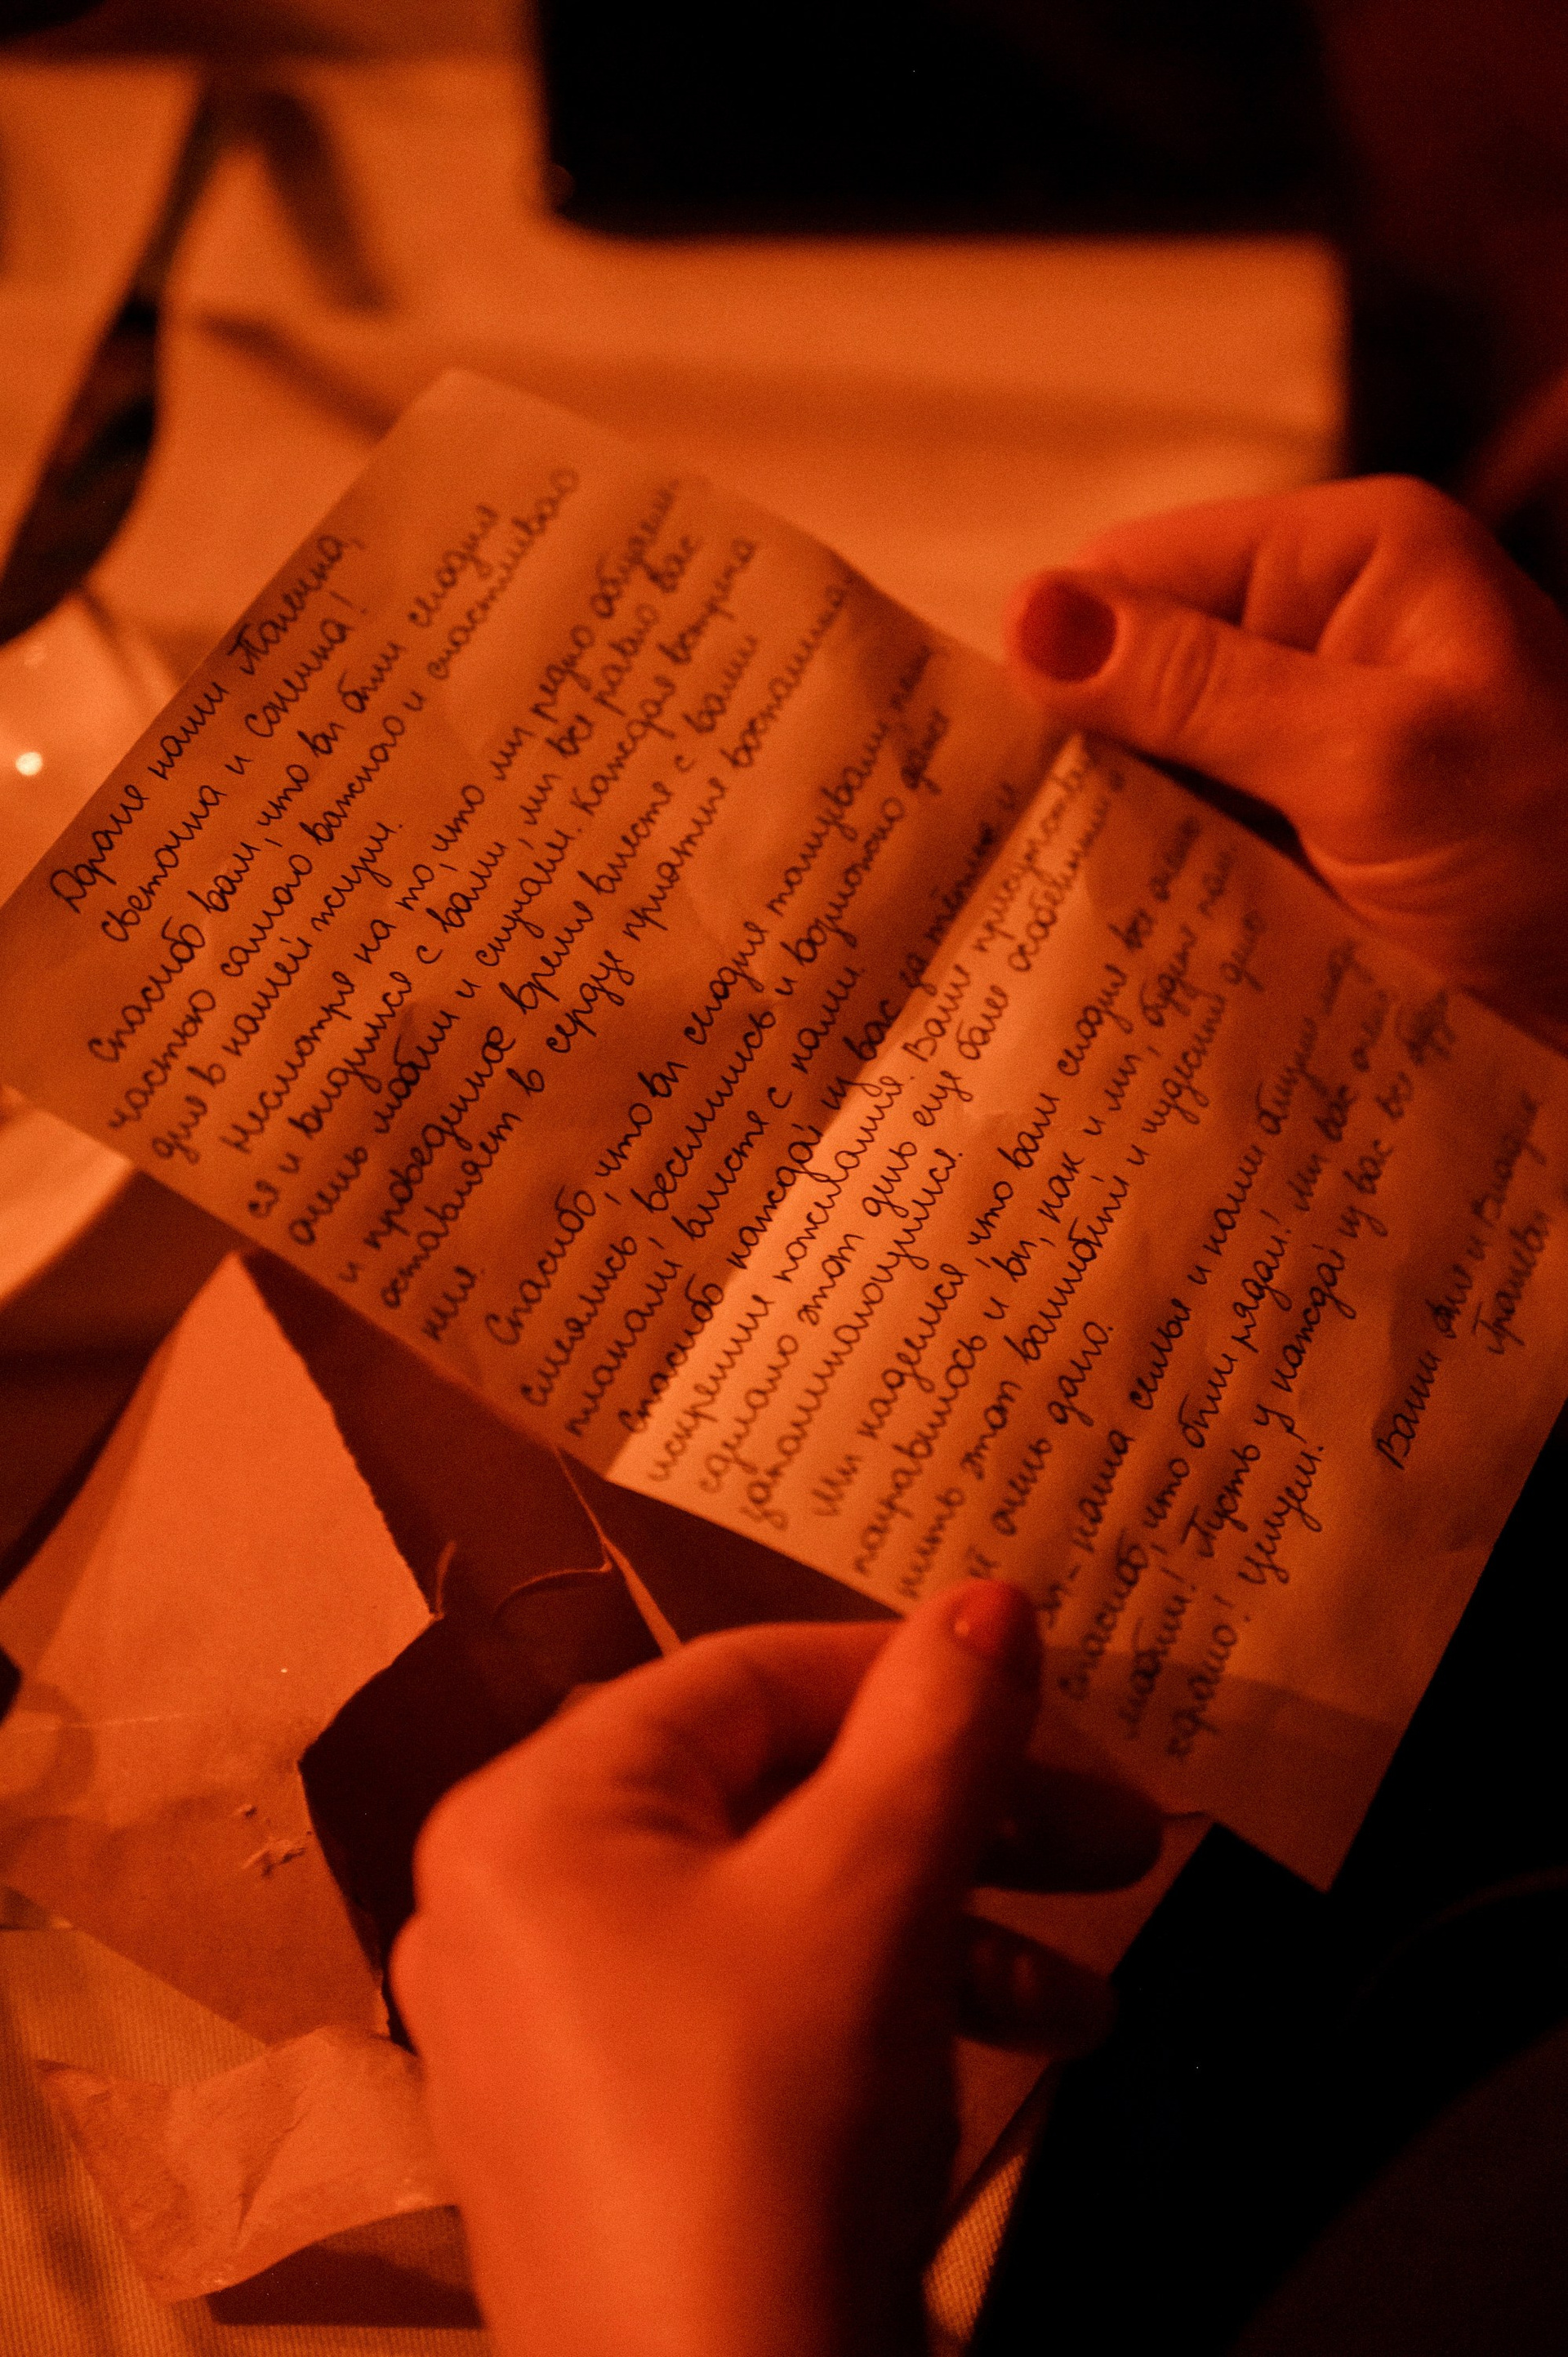 Дорогие наши Полечка,
Светочка и Сонечка!
Спасибо вам, что вы были сегодня
частью самого важного и счастливого
дня в нашей жизни.
Несмотря на то, что мы редко общаем-
ся и видимся с вами, мы все равно вас
очень любим и скучаем. Каждая встреча
и проведенное время вместе с вами
оставляет в сердце приятные воспомина-
ния.
Спасибо, что вы сегодня танцевали, пели,
смеялись, веселились и возможно даже
плакали, вместе с нами.
Спасибо каждой из вас за тёплые и
искренние пожелания. Ваше присутствие
сделало этот день еще более особенным и
запоминающимся.
Мы надеемся, что вам сегодня все очень
понравилось и вы, как и мы, будете пом-
нить этот волшебный и чудесный день
очень долго.
Вы - наша семья и наши близкие люди
Спасибо, что были рядом! Мы вас очень
любим! Пусть у каждой из вас все будет
хорошо! Целуем!
Ваши Аня и Владик